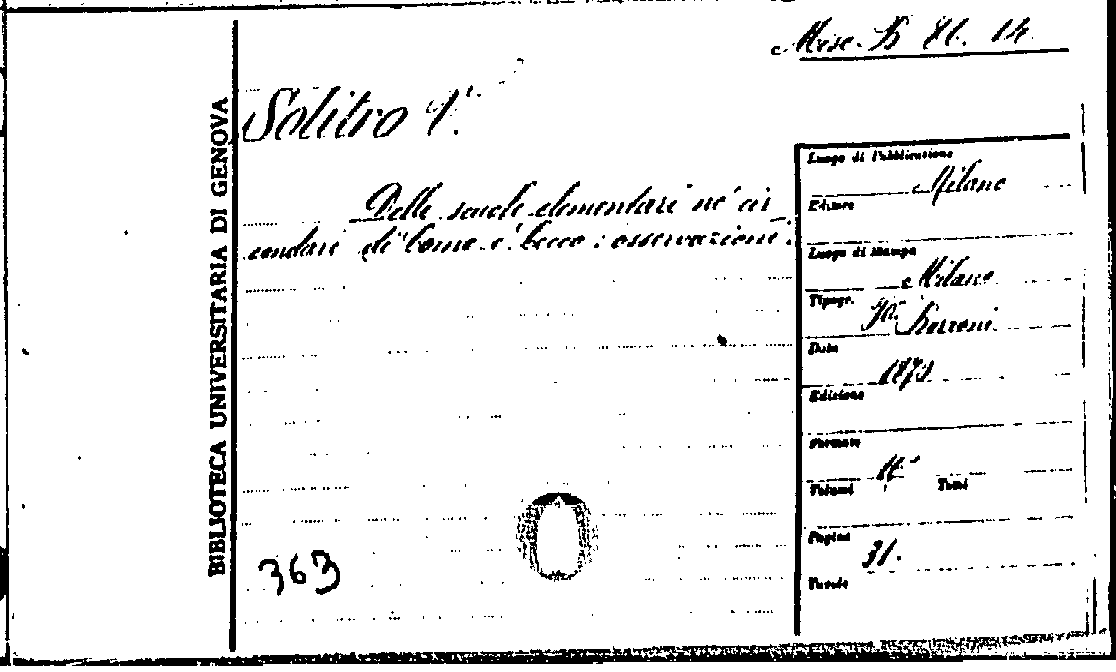 Misc. B 81. 14
BIBLIOTECA UNIVERSITARIA DI GENOVA
Solitro
Delle scuole elementari ne' cir
condari di Como e Lecco : osservazioni.
Luogo di Pubblicazione
Milano
Editore
Luogo di stampa
Milano
Tipogr.
Data
Edizione
Formato
Volumi Tomi
Pagine
31.
Tavole
363